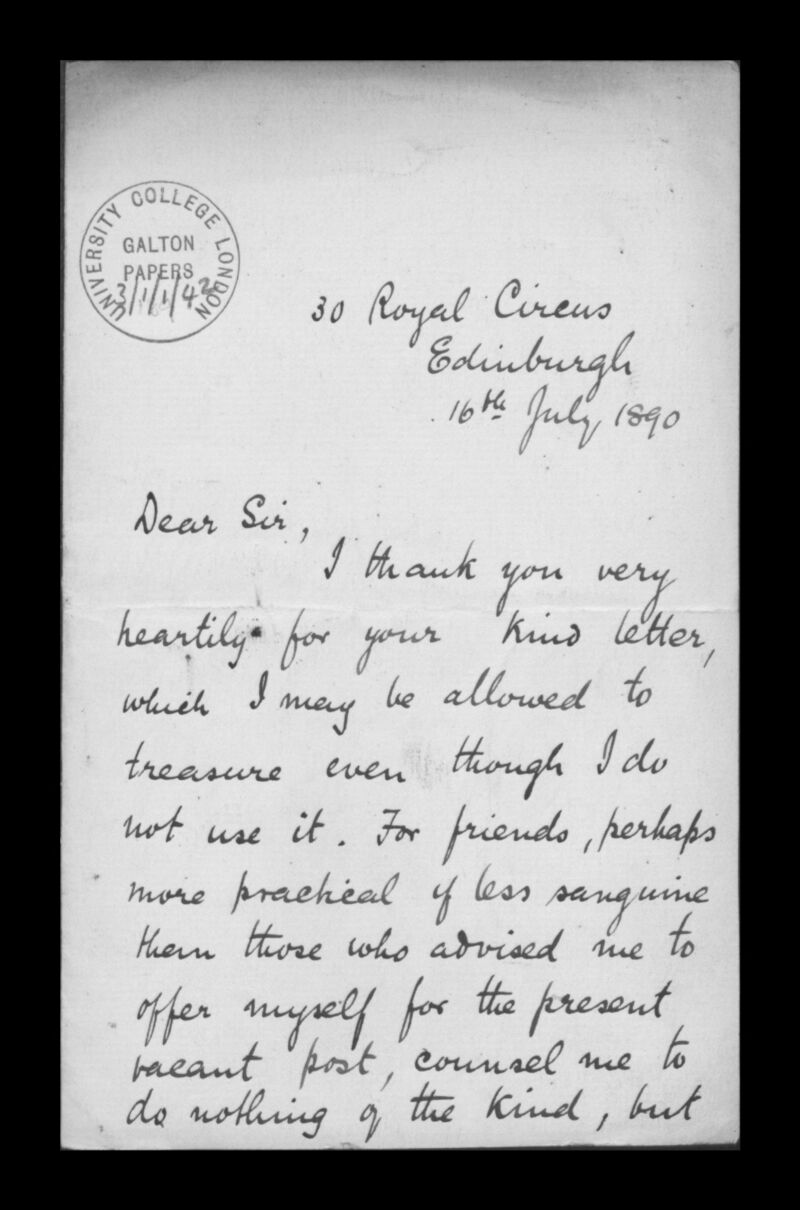 UNIVERSITY COLLEGE LONDON
GALTON
PAPERS
3/1/1/42
30 Royal Circus
Edinburgh
16th July 1890
Dear Sir,
I thank you very
heartily for your kind letter,
which I may be allowed to
treasure even though I do
not use it. For friends, perhaps
more practical if less sanguine
than those who advised me to
offer myself for the present
vacant post, counsel me to
do nothing of the kind, but